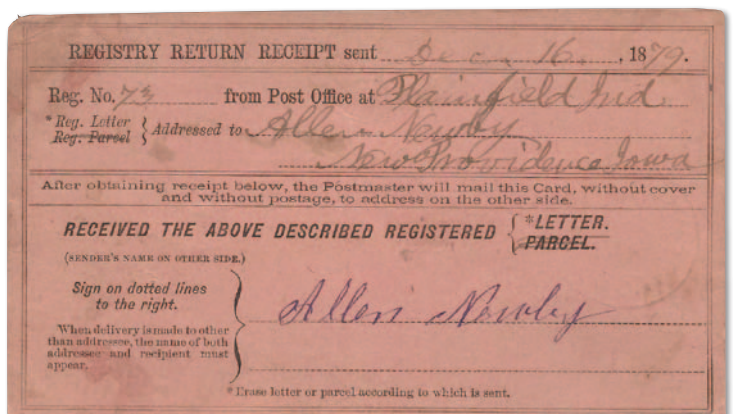 REGISTRY RETURN RECEIPT sent Dec. 16, 1879.
Reg. No. 73 from Post Office at Plainfield Ind.
*Reg. Letter
Reg. Parcel } Addressed to Allen Newby
New Providence Iowa
After obtaining receipt below, the Postmaster will mail this Card, without cover
and without postage, to address on the other side.
RECEIVED THE ABOVE DESCRIBED REGISTERED { *LETTER.
PARCEL.
(SENDER'S NAME ON OTHER SIDE.)
Sign on dotted lines
to the right.
Allen Newby
When delivery is made to other
than addressee, the name of both
addressee and recipient must
appear.
*Erase letter or parcel according to which is sent.